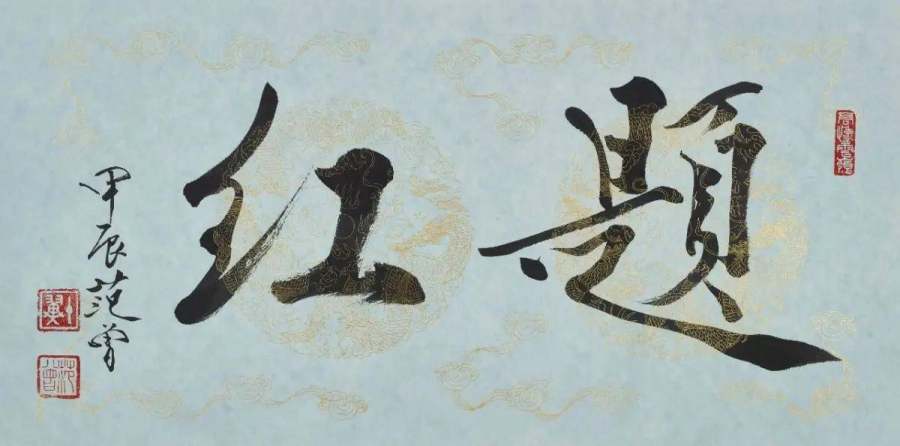 題红
甲辰范曾